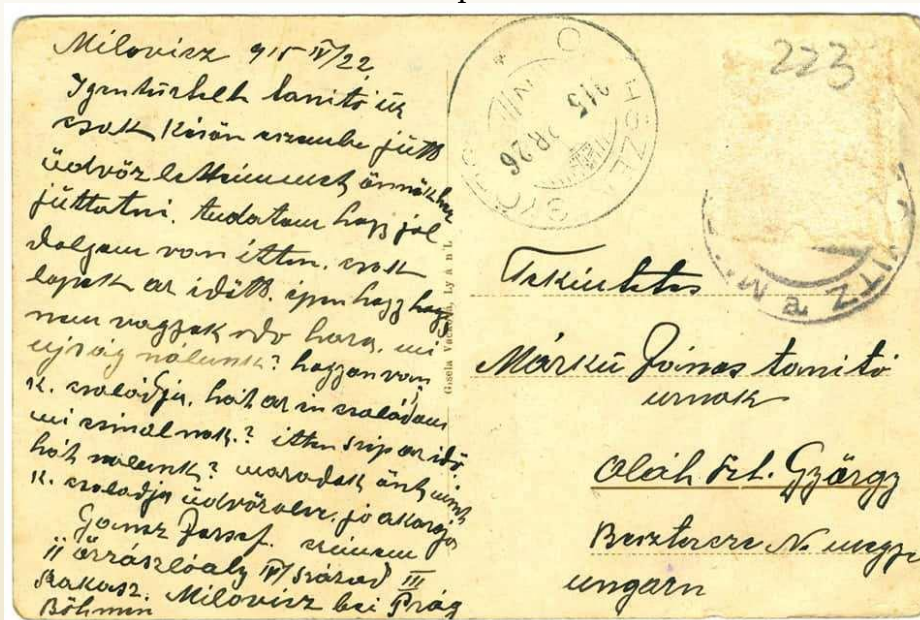 Milovisz 915 IV/22
Igentisztelt tanitó úr
csak késön eszembe jütt
üdvözletteimet önnökhez
jüttatni. tudatom hogy jól
dolgom van itten. csak
lopok az idött. épen hogy hogy
nem vagyok oda haza. mi
ujság nálunk? hogyan van
k. családja. hát az én családom
mi csinálnak.? itten szip az idö
hát nálunk? maradok önt mint
k. családja üdvözölve. jó akarója
Gansz Jozsef. címem
II örrászlóaly IV/század III
szakasz. Milovisz bei Prág
Böhmen
Gisela Vacková, Lysá n/L
915 APR 26
223
VITZ
Tekintetes
Márkű János tanitó
urnak
Oláh Szt. György
Besztercze N. megye
ungarn